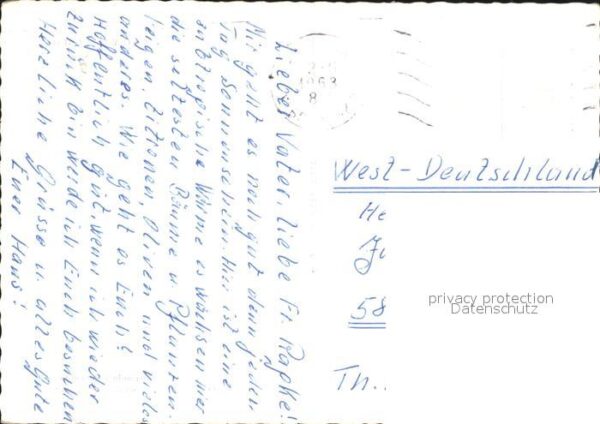 Lieber Vater, liebe Fr. Papke!
Mir geht es noch gut denn jeden
Tag Sonnenschein. Hier ist eine
subtropische Wärme es wachsen hier
die seltesten Bäume u. Pflanzen.
Feigen, Zitronen, Oliven und vieles
anderes. Wie geht es Euch?
Hoffentlich gut, wenn ich wieder
zurück bin werde ich Euch besuchen
Herzliche Grüsse u. alles Gute
Euer Hans!
1963
8
West-Deutschland
He
58
Th..
privacy protection
Datenschutz